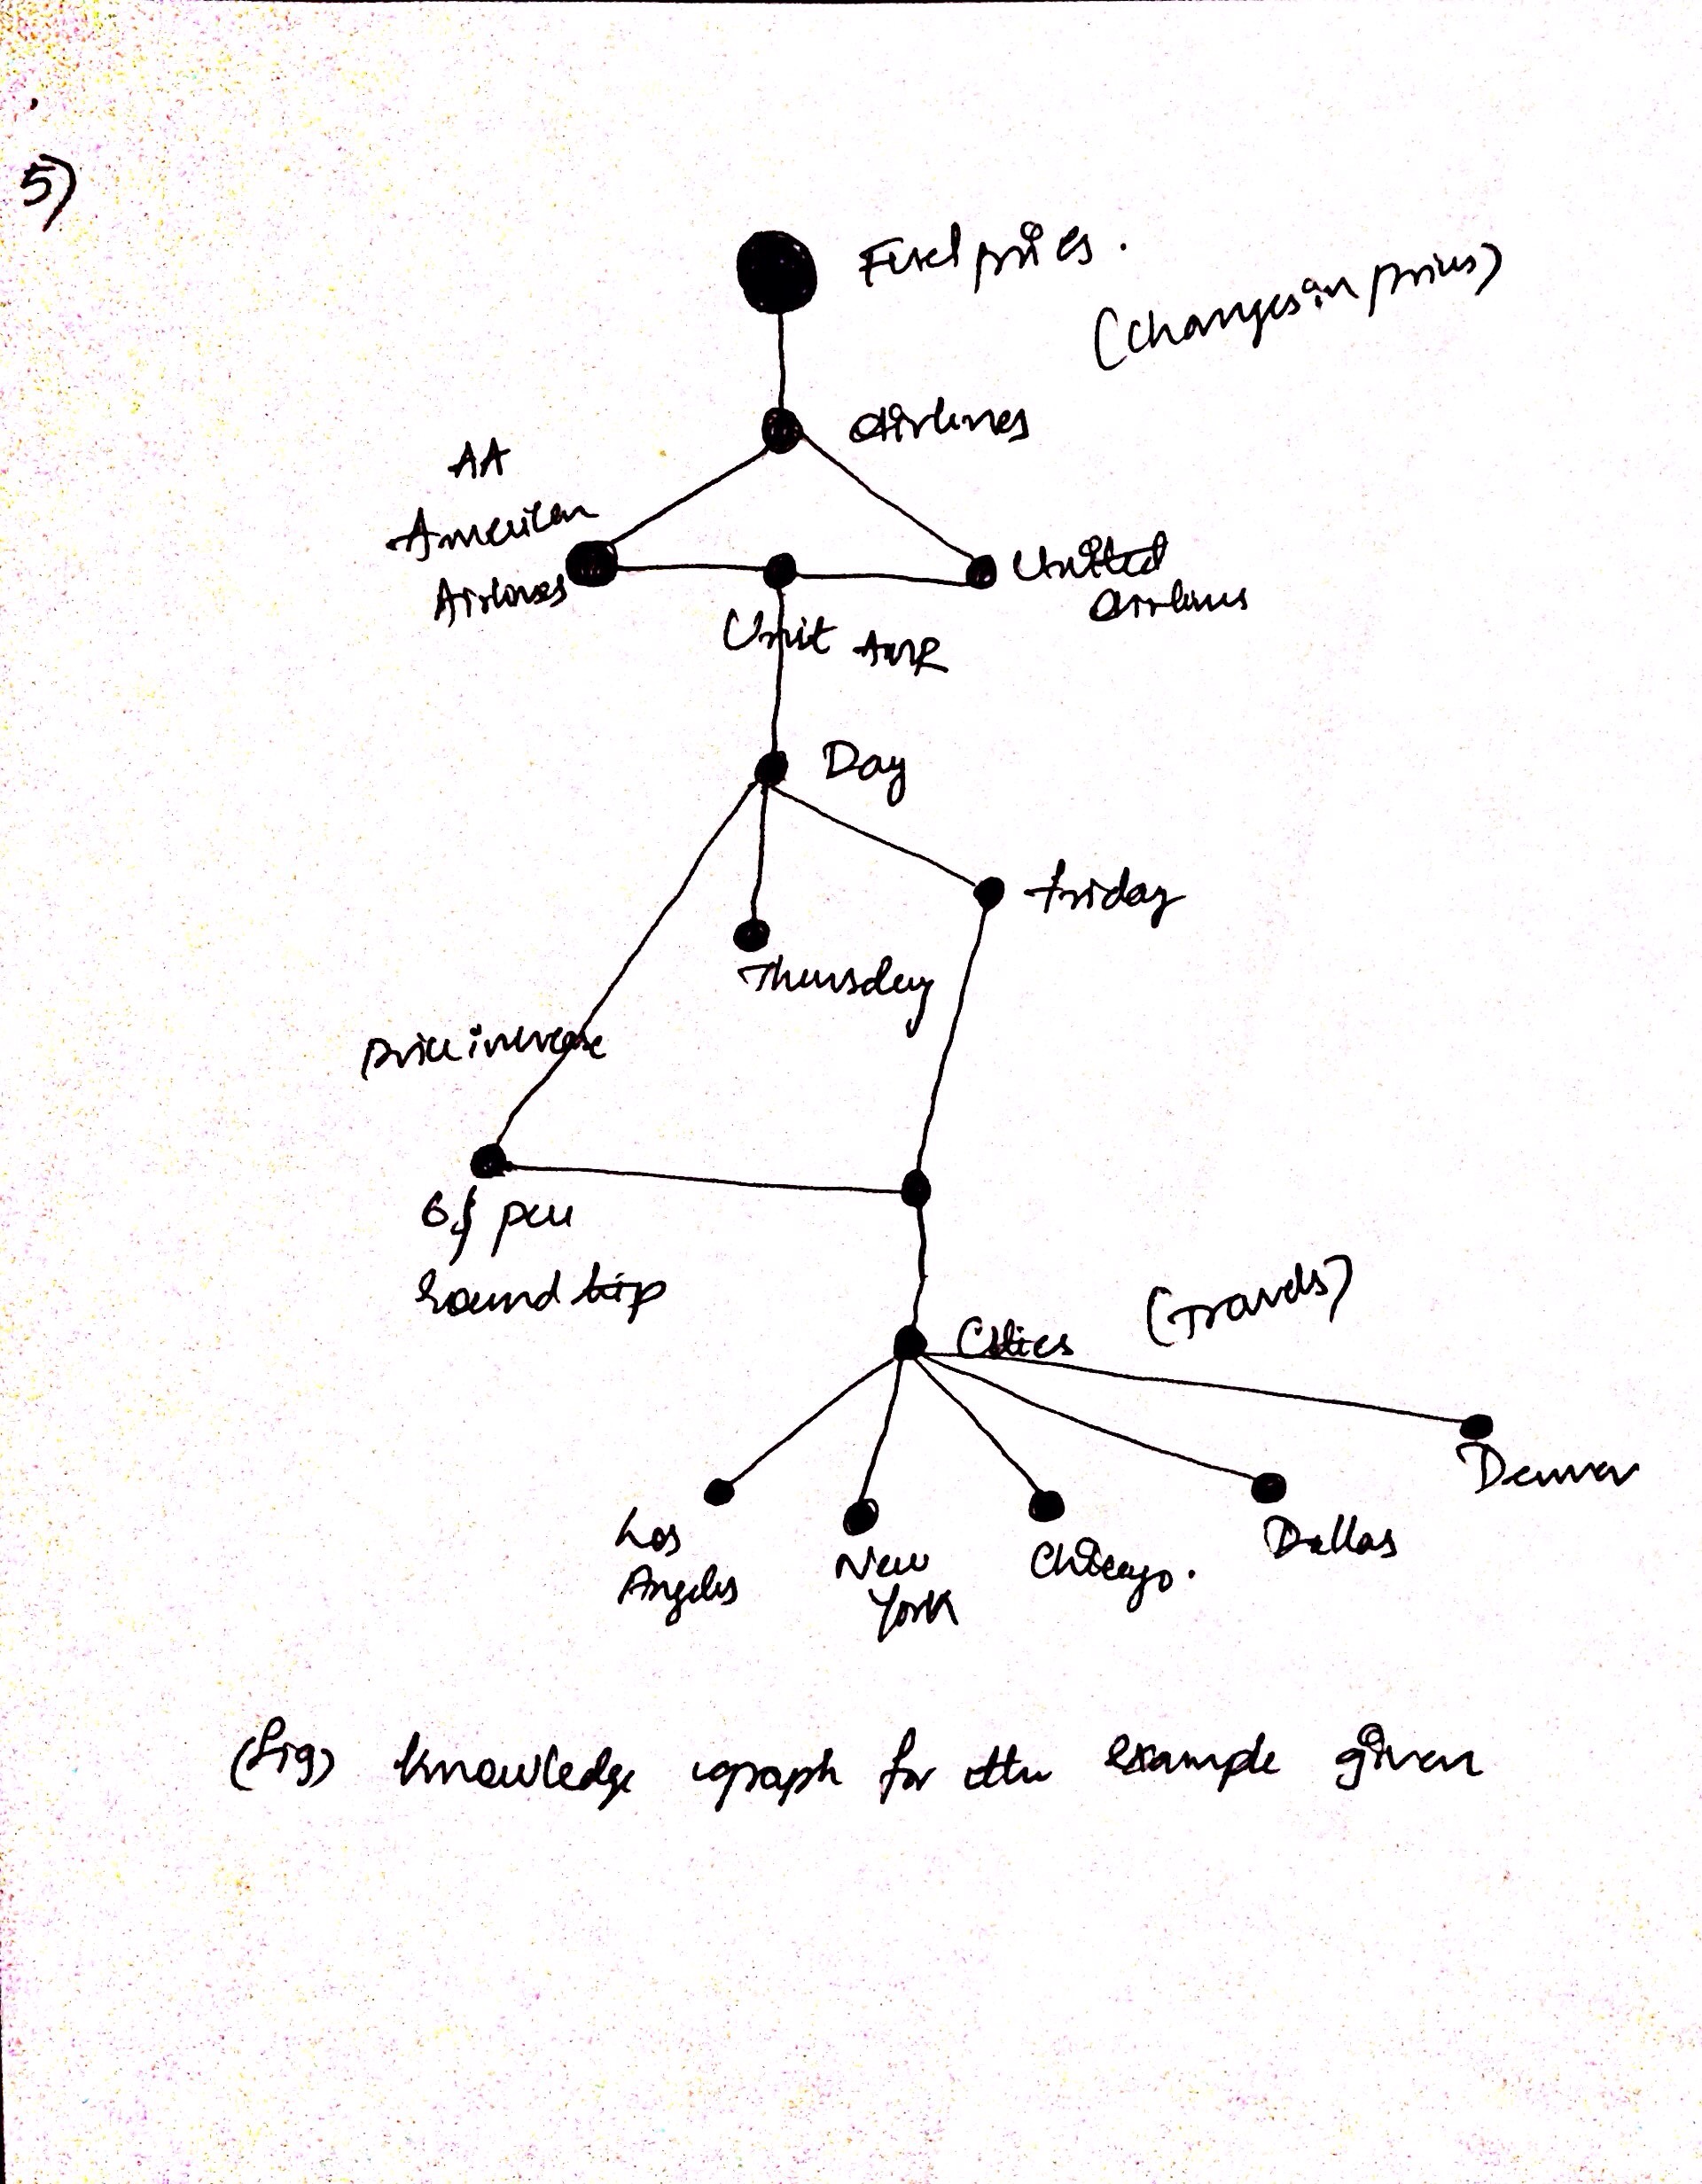 5)
Fuel prices.
(Changes in prices)
Airlines
AA
American
Airlines
United
Airlines
Unit AMR
Day
friday
Thursday
price increase
6$ per
round trip
(Travels)
Cities
Denver
Los
Angeles
New
York
Chicago.
Dallas
(fig) knowledge graph for the example given